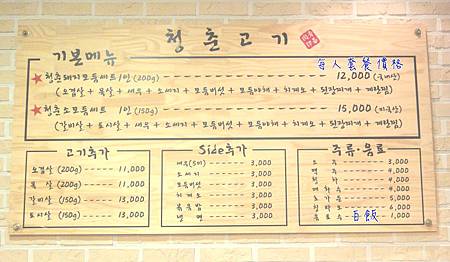 청춘고기
기본메뉴
每人套餐價格
★청춘돼지모듬세트 1인 (200g) 12,000 (국내산)
(오겹살 + 목살 + 새우 + 소세지 + 모듬버섯 + 모듬야채 + 치계소 + 된장찌개 + 계란찜)
★청춘소모듬세트 1인 (150g) 15,000
(갈비살 + 토시살 + 새우 + 소세지 + 모듬버섯 + 모듬야채 + 치계소 + 된장찌개 + 계란찜)
고기추가
오겹살 (200g) 11,000
목살 (200g) 11,000
갈비살 (150g) 13,000
토시살 (150g) 13,000
Side추가
새우(5미) 3,000
소세지 3,000
모듬버섯 3,000
치계소 3,000
볶음밥 3,000
냉면 3,000
주류·음료
소주 3,000
맥주 4,000
청하 4,000
매화수 4,000
5,000
6,000
음료수 1,000
白飯